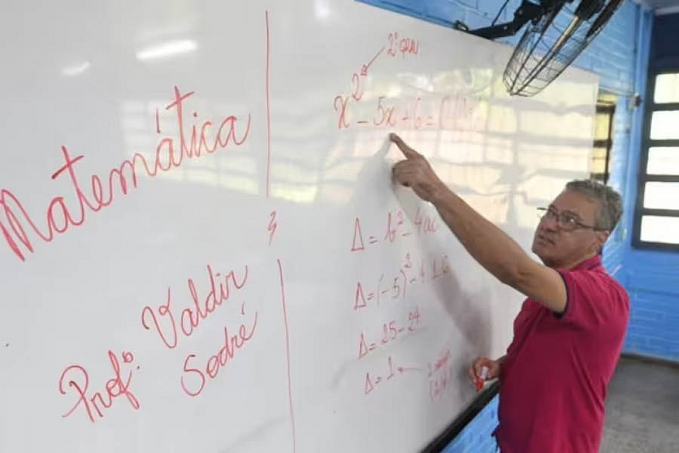 Matemática
Prof.º Valdir
Sodré
2º grau
x² - 5x + 6 = 0
Δ = b² - 4ac
Δ = (-5)² - 4.1.6
Δ = 25 - 24
Δ = 1